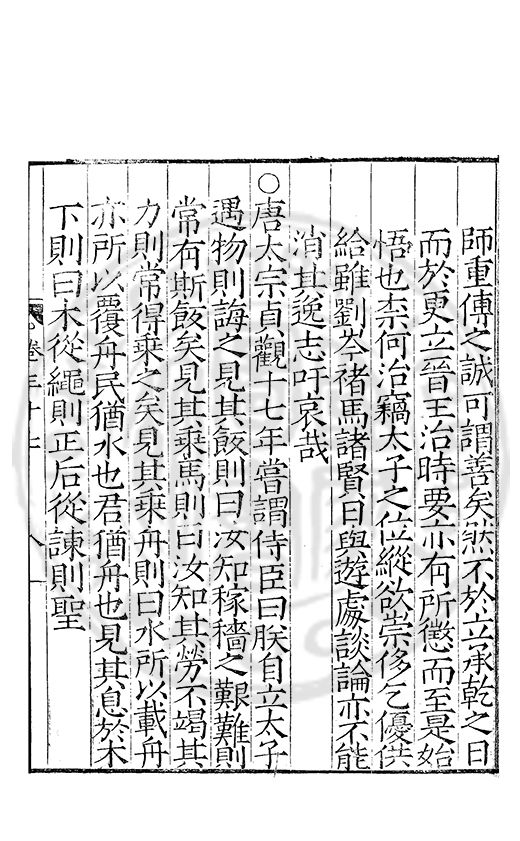 師重傅之誠可謂善矣然不於立承乾之日
而於更立晉王治時要亦有所懲而至是始
悟也柰何治竊太子之位縱欲崇侈乞優供
給雖劉岑褚馬諸賢日與遊處談論亦不能
消其逸志吁哀哉
○唐太宗貞觀十七年嘗謂侍臣曰朕自立太子
遇物則誨之見其飯則曰汝知稼穡之艱難則
常有斯飯矣見其乘馬則曰汝知其勞不竭其
力則常得乘之矣見其乘舟則曰水所以載舟
亦所以覆舟民猶水也君猶舟也見其息於木
下則曰木從繩則正后從諫則聖
卷三十七
八